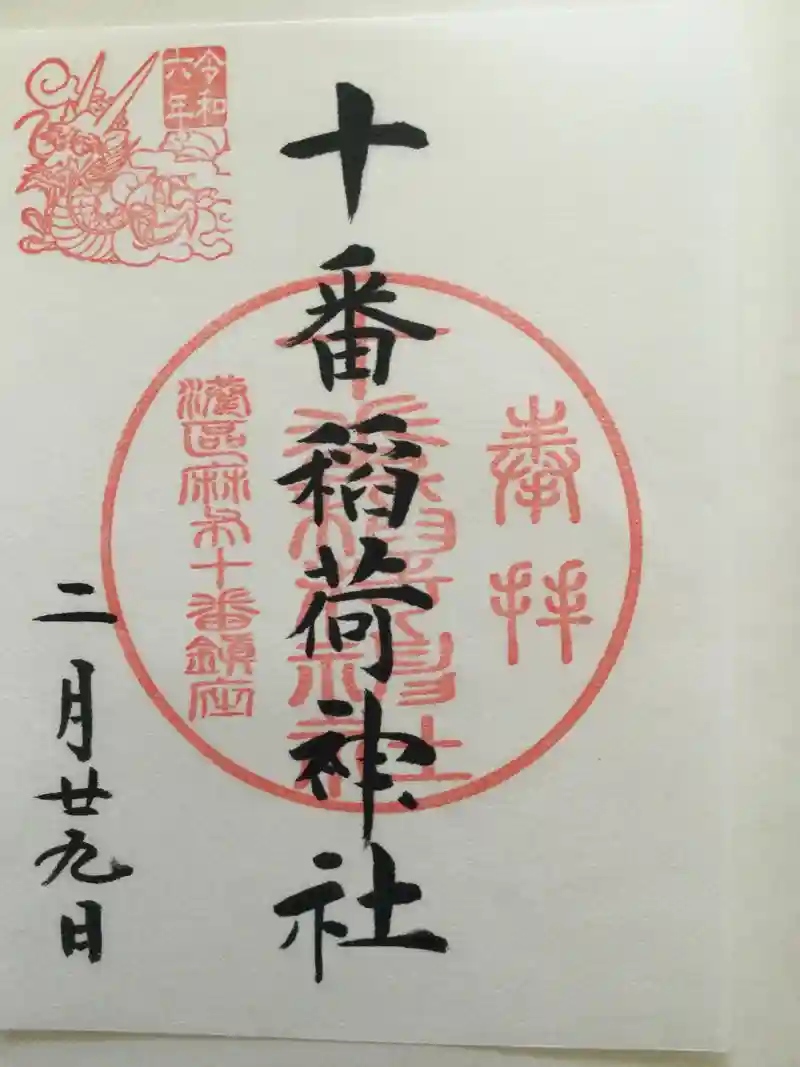 奉拝
十番稲荷神社
十番稲荷神社
港区麻布十番鎮座
令和六年
二月廿九日